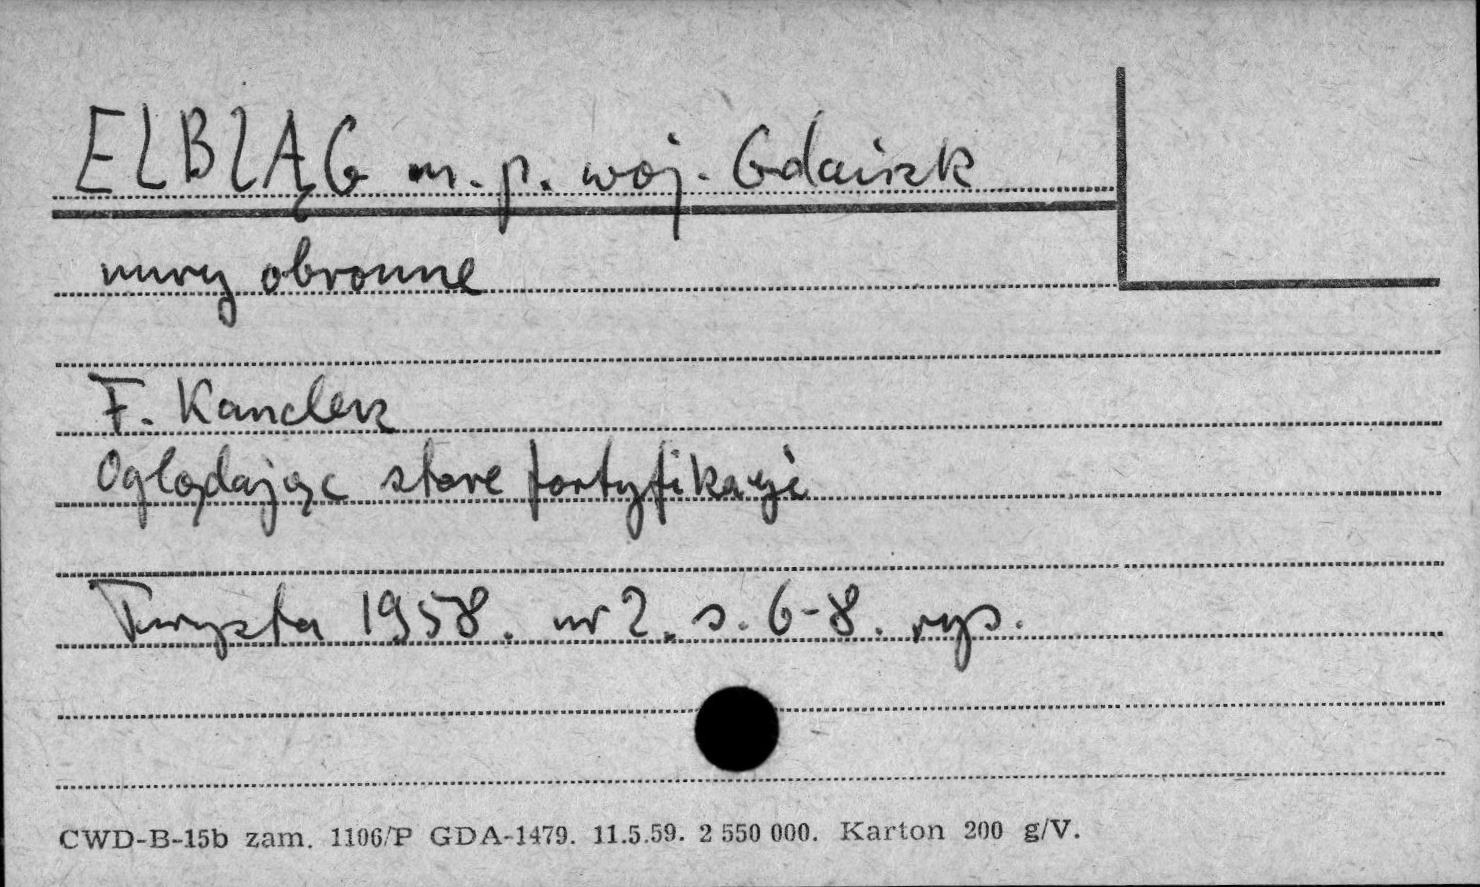 ELBLĄG m. p. woj. Gdańsk
mury obronne
F. Kanclerz
Oglądając stare fortyfikacje
Turysta 1958. nr 2. s. 6-8. rys.
CWD-B-15b zam. 1106/P GDA-1479. 11.5.59. 2 550 000. Karton 200 g/V.